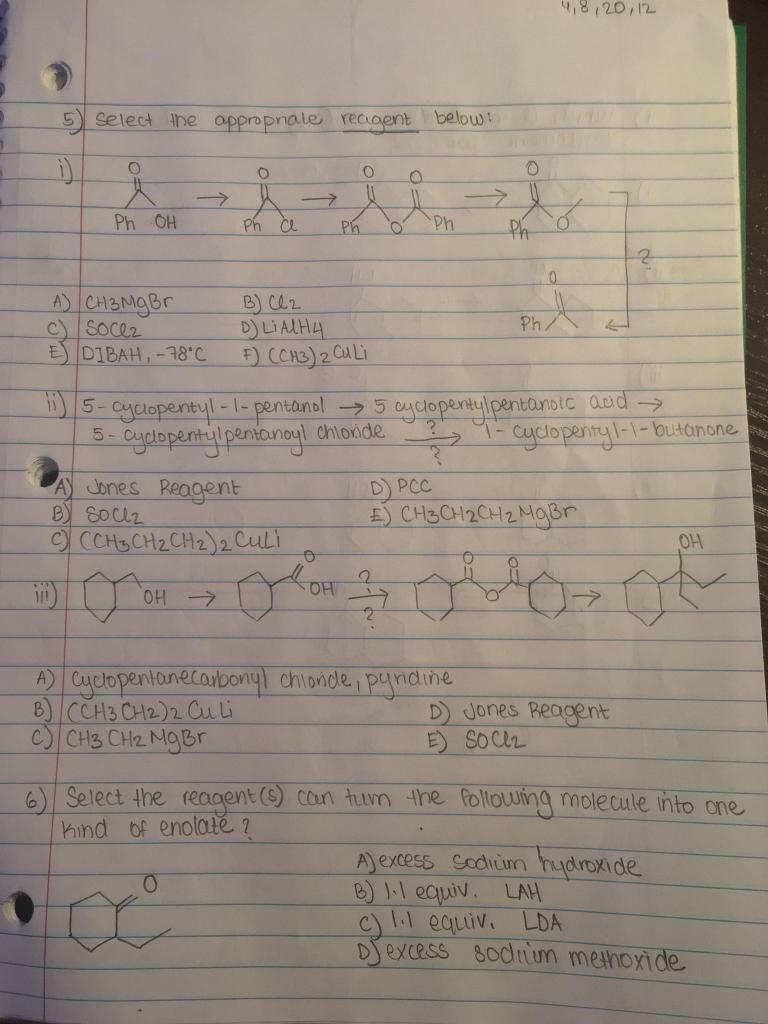 4,8,20,12
5) Select the appropriate reagent below:
i)
O O O O O
Ph OH → Ph Cl → Ph O Ph → Ph O
?
O
Ph
A) CH3MgBr B) Cl2
C) SOCl2 D) LiAlH4
E) DIBAH, -78°C F) (CH3)2CuLi
ii) 5-cyclopentyl-1-pentanol → 5 cyclopentylpentanoic acid →
5-cyclopentylpentanoyl chloride ?→? 1-cyclopentyl-1-butanone
A) Jones Reagent D) PCC
B) SOCl2 E) CH3CH2CH2MgBr
C) (CH3CH2CH2)2CuLi
iii) OH → O OH ?→? O O O → OH
A) Cyclopentanecarbonyl chloride, pyridine
B) (CH3CH2)2CuLi D) Jones Reagent
C) CH3CH2MgBr E) SOCl2
6) Select the reagent(s) can turn the following molecule into one
kind of enolate?
O
A) excess sodium hydroxide
B) 1.1 equiv. LAH
C) 1.1 equiv. LDA
D) excess sodium methoxide